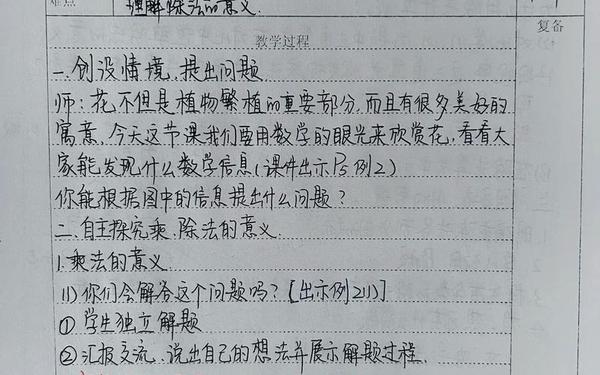 难点
理解除法的意义.
教学过程
复备
一.创设情境,提出问题
师:花不但是植物繁植的重要部分,而且有很多美好的
寓意,今天这节课我们要用数学的眼光来欣赏花,看看大
家能发现什么数学信息(课件出示P5例2)
你能根据图中的信息提出什么问题?
二.自主探究乘.除法的意义.
1.乘法的意义.
(1)你们会解答这个问题吗?[出示例2(1)]
①学生独立解题
②汇报交流,说出自己的想法并展示解题过程.